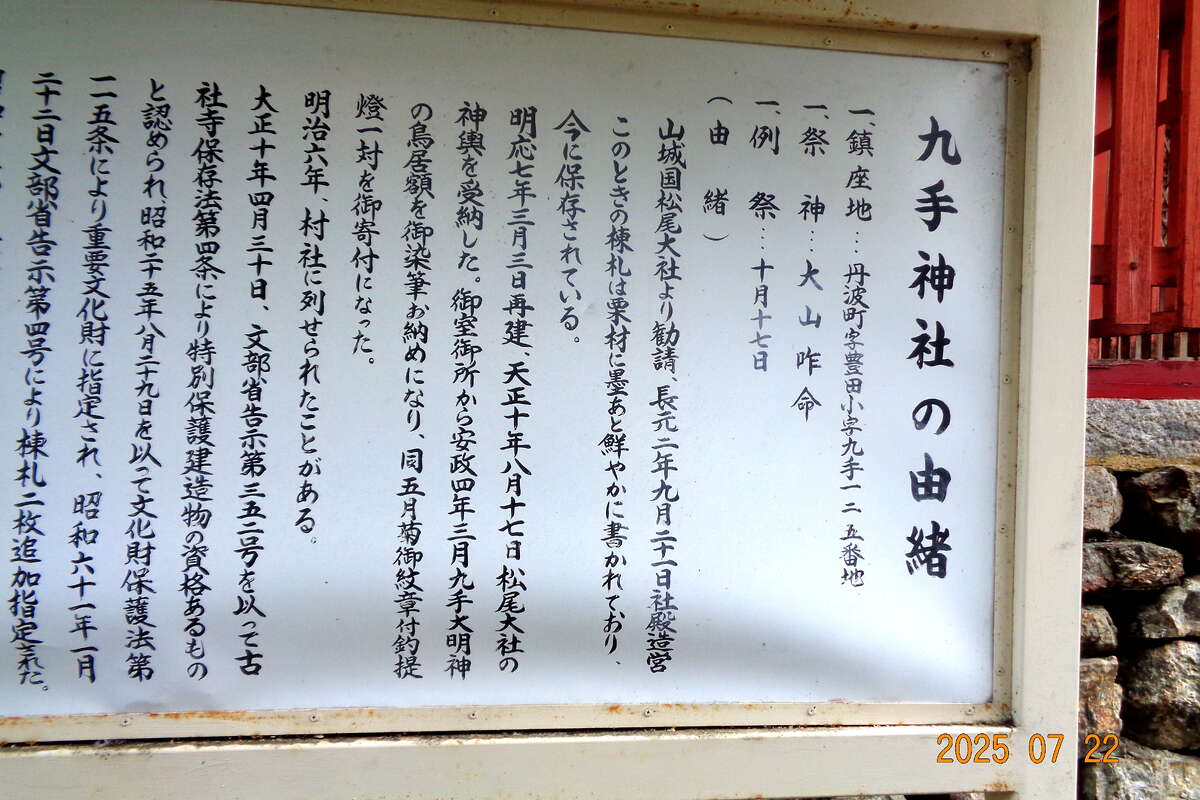 九手神社の由緒
一、鎮座地……丹波町字豊田小字九手一二五番地
一、祭神……大山咋命
一、例祭……十月十七日
（由緒）
山城国松尾大社より勧請、長元二年九月二十一日社殿造営
このときの棟札は栗材に墨あと鮮やかに書かれており、
今に保存されている。
明応七年三月三日再建、天正十年八月十七日松尾大社の
神輿を受納した。御室御所から安政四年三月九手大明神
の鳥居額を御染筆お納めになり、同五月菊御紋章付釣提
燈一対を御寄付になった。
明治六年、村社に列せられたことがある。
大正十年四月三十日、文部省告示第三五二号を以って古
社寺保存法第四条により特別保護建造物の資格あるもの
と認められ、昭和二十五年八月二十九日を以って文化財保護法第
一一五条により重要文化財に指定され、昭和六十一年一月
二十二日文部省告示第四号により棟札二枚追加指定された。
2025 07 22